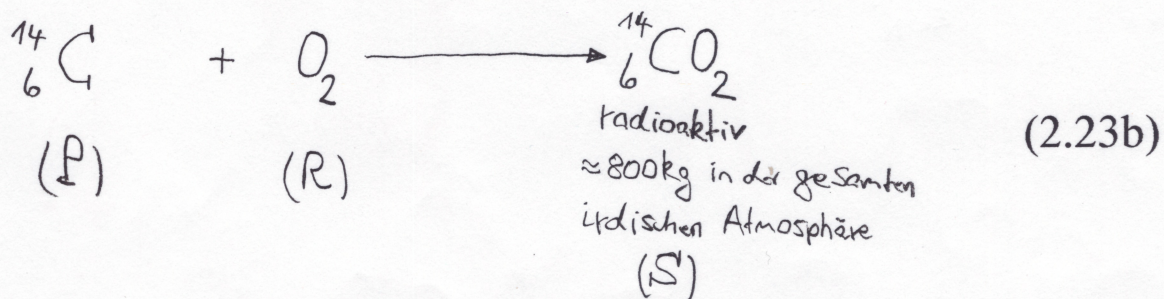 ¹⁴₆C + O₂ ⟶ ¹⁴₆CO₂
radioaktiv
≈800kg in der gesamten
irdischen Atmosphäre
(2.23b)
(P) (R)
(S)